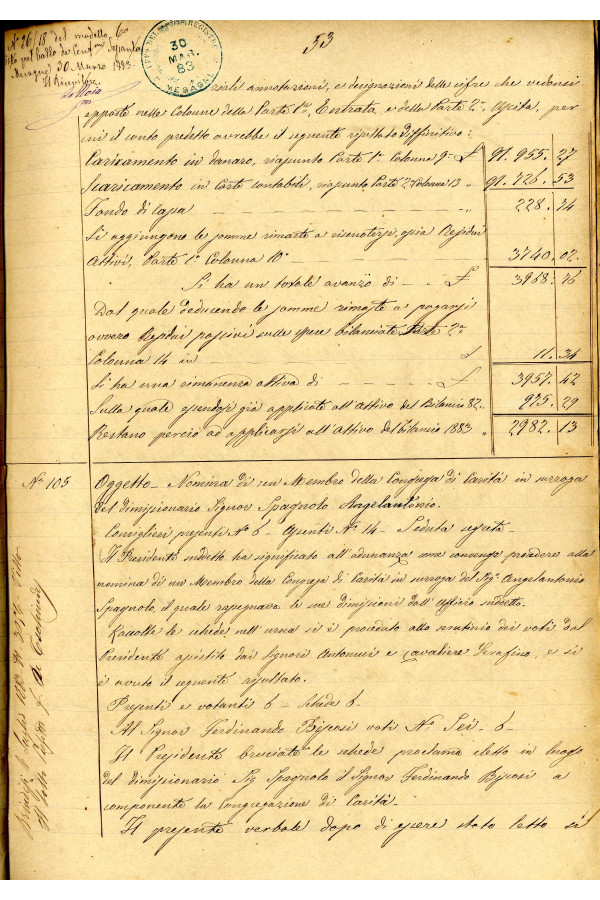 N° 26/18 del modello 60
Mesagne 30 Marzo 1883.
Il Ricevitore
53
UFF. DEL REGISTRO
30
MAR.
83
MESAGNE
annotazioni, e designazioni delle cifre che vedonsi
apposte nelle Colonne della Parte 1ª Entrata, e della Parte 2ª Uscita, per
cui il conto predetto avrebbe il seguente risultato diffinitivo:
Caricamento in danaro, riassunto Parte 1ª Colonna 9ª £ 91.955.27
Scaricamento in Carte contabili, riassunto Parte 2ª Colonna 13 " 91.726.53
Fondo di Cassa 228.74
Si aggiungono le somme rimaste a riscuotersi, ossia Residui
Attivi, Parte 1ª Colonna 10ª 3740.02.
Si ha un totale avanzo di £ 3968.76
Dal quale deducendo le somme rimaste a pagarsi
ovvero Residui passivi sulle spese bilanciate Parte 2ª
Colonna 14 in £ 11.34
Si ha una rimanenza attiva di £ 3957.42
Sulla quale essendosi già applicate all'Attivo del Bilancio 82 975.29
Restano perciò ad applicarsi all'Attivo del bilancio 1883 " 2982.13
N° 105
Oggetto - Nomina di un Membro della Congrega di Carità in surroga
del dimissionario Signor Spagnolo Angelantonio.
Consiglieri presenti N° 6 - Assenti N° 14 - Seduta segreta
Il Presidente suddetto ha significato all'adunanza come convenga procedere alla
nomina di un Membro della Congrega di Carità in surroga del Sigr. Angelantonio
Spagnolo, il quale rassegnava le sue dimissioni dall'Ufficio suddetto.
Raccolte le schede nell'urna si è proceduto allo scrutinio dei voti dal
Presidente assistito dai Signori Antonucci e Cavaliere Serafino, e si
è avuto il seguente risultato.
Presenti e votanti 6 - Schede 6 -
Al Signor Ferdinando Bissosi voti N° Sei - 6 -
Il Presidente bruciate le schede proclama eletto in luogo
del dimissionario Sig. Spagnolo il Signor Ferdinando Bissosi a
componente la Congregazione di Carità -
Il presente verbale dopo di essere stato letto si
Brindisi 6 1883 N°
Il Sotto Prefetto